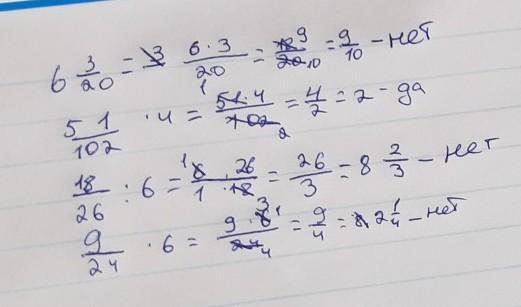 6 3/20 = 6·3/20 = 18/20 = 9/10 - нет
51/102 · 4 = 51·4/102 = 4/2 = 2 - да
18/26 : 6 = 6·26/1·18 = 26/3 = 8 2/3 - нет
9/24 · 6 = 9·6/24 = 9/4 = 2 1/4 - нет